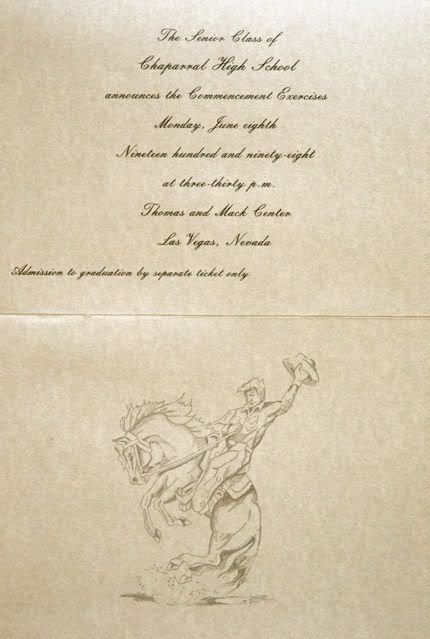 The Senior Class of
Chaparral High School
announces the Commencement Exercises
Monday, June eighth
Nineteen hundred and ninety-eight
at three-thirty p.m.
Thomas and Mack Center
Las Vegas, Nevada
Admission to graduation by separate ticket only